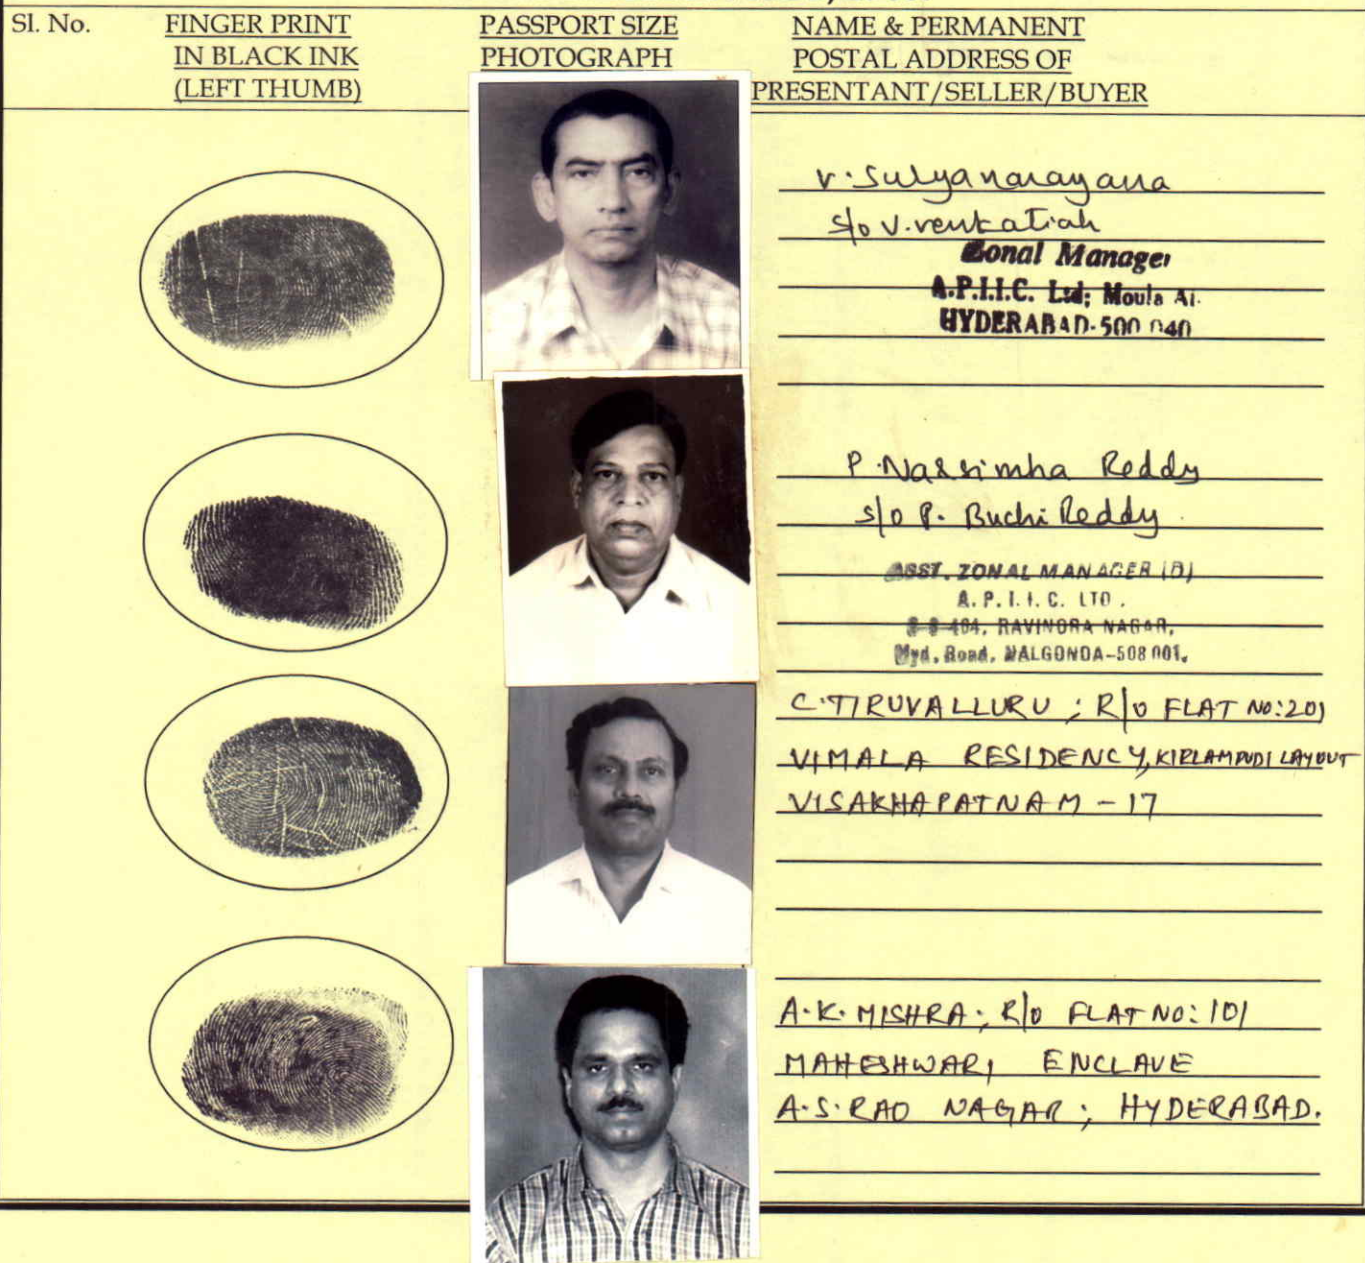 Sl. No. FINGER PRINT IN BLACK INK (LEFT THUMB)
PASSPORT SIZE PHOTOGRAPH
NAME & PERMANENT
POSTAL ADDRESS OF
PRESENTANT/SELLER/BUYER
V. Suryanarayana
S/o V. Venkatiah
Zonal Manager
A.P.I.I.C. Ltd; Moula Ai.
HYDERABAD-500 040
P. Narsimha Reddy
S/o P. Buchi Reddy
ASST. ZONAL MANAGER (B)
A. P. I. I. C. LTD.
RAVINDRA NAGAR,
Hyd. Road, NALGONDA-508 001.
C. TIRUVALLURU ; R/o FLAT NO: 201
VIMALA RESIDENCY, KIRLAMPUDI LAYOUT
VISAKHAPATNAM - 17
A. K. MISHRA ; R/o FLAT NO: 101
MAHESHWARI ENCLAVE
A. S. RAO NAGAR ; HYDERABAD.